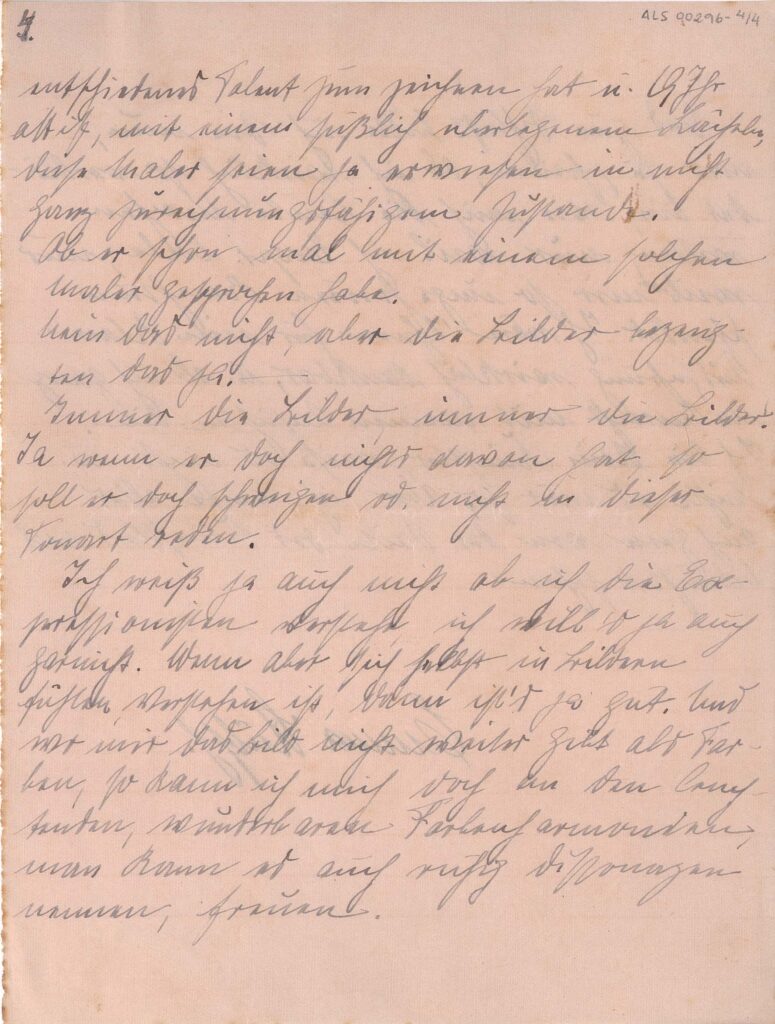 4.
ALS 90296-4/4
entschiedenes Talent zum zeichnen hat u. 19 Jhr
alt ist, mit einem süßlich überlegenem Lächeln,
diese Maler seien ja erwiesen in nicht
ganz zurechnungsfähigem Zustande.
Ob er schon mal mit einem solchen
Maler gesprochen habe.
Nein das nicht, aber die Bilder bezeug-
ten das ja. —
Immer die Bilder, immer die Bilder.
Ja wenn er doch nichts davon hat so
soll er doch schweigen od. nicht in dieser
Tonart reden.
Ich weiß ja auch nicht ob ich die Ex-
pressionisten verstehe, ich will's ja auch
garnicht. Wenn aber sich selbst in Bildern
fühlen, verstehen ist, dann ist's ja gut. Und
wo mir das Bild nicht weiter gibt als Far-
ben, so kann ich mich doch an den leuch-
tenden, wunderbaren Farbenharmonien,
man kann es auch ruhig Dissonazen
nennen, freuen.